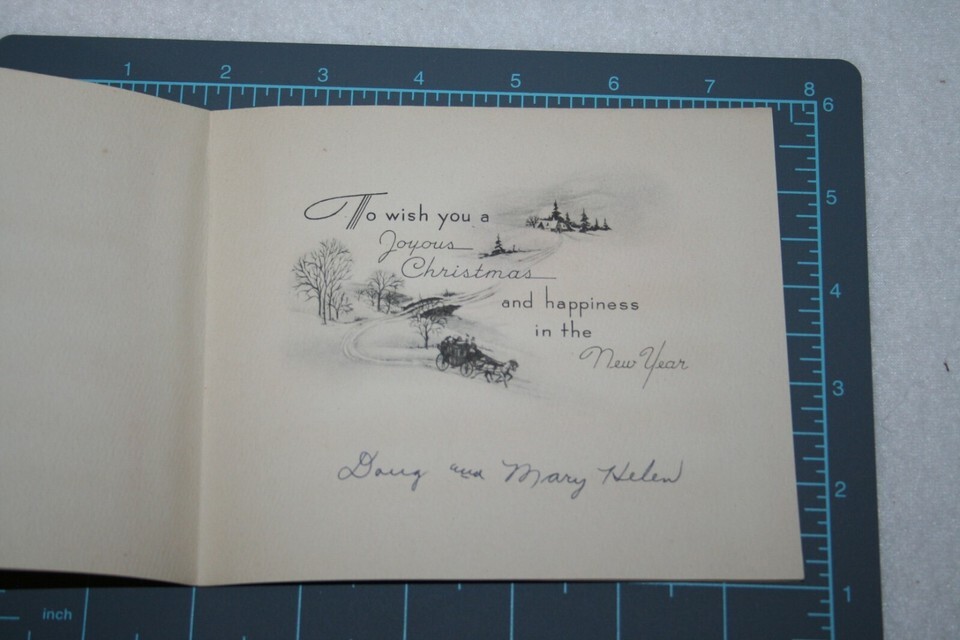 1 2 3 4 5 6 7 8
6
5
4
3
2
1
inch
To wish you a
Joyous
Christmas
and happiness
in the
New Year
Doug and Mary Helen